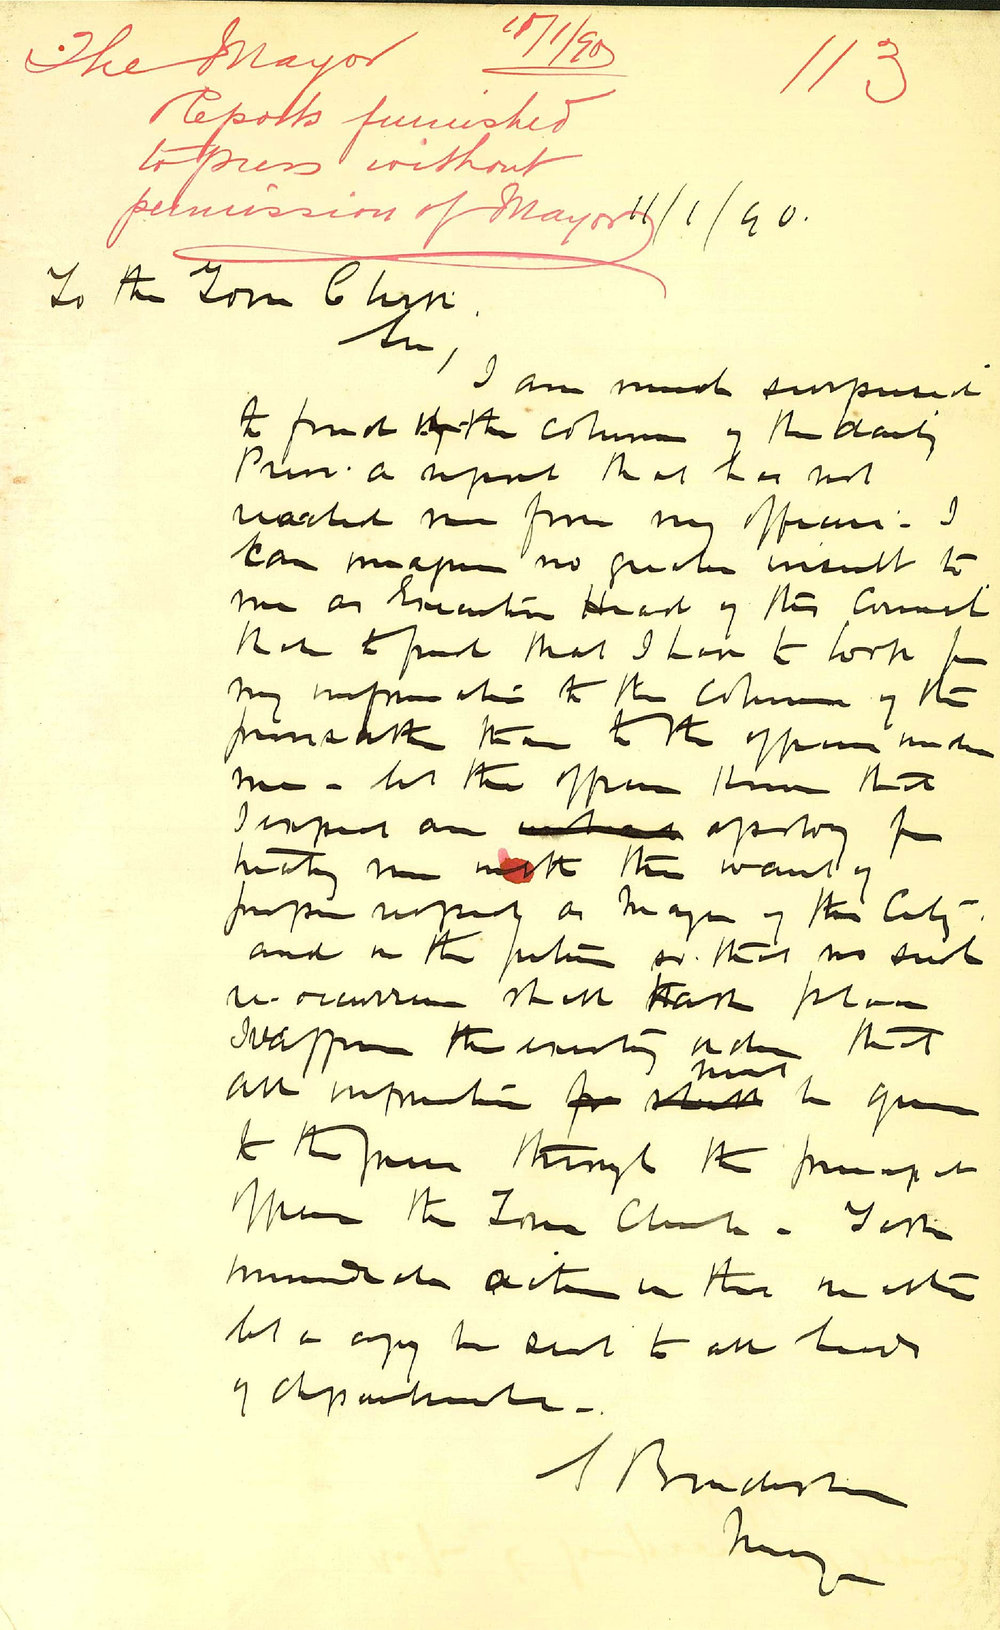 The Mayor
15/1/90
113
Reports furnished
to press without
permission of Mayor
11/1/90.
To the Town Clerk.
Sir,
I am much surprised
to find in the columns of the daily
Press. a report that has not
reached me from my officers - I
can imagine no greater insult to
me as Executive Head of this Council
than to find that I have to look for
my information to the columns of the
press rather than to the officers under
me - let the officers know that
I expect an apology for
treating me with this want of
proper respect as Mayor of this City -
and in the future so that no such
re-occurrence shall take place
I reaffirm the existing order that
all information must be given
to the press through the principal
officer the Town Clerk - Take
immediate action in this matter
let a copy be sent to all heads
of departments -
Mayor